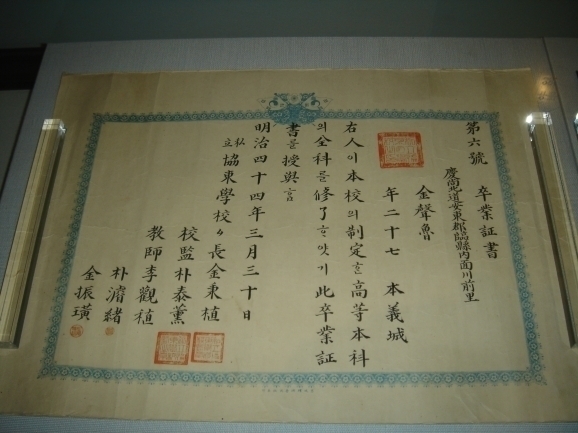 第六號 卒業証書
慶尙北道安東郡臨縣內面川前里
金聲魯
年二十七 本義城
右人이本校의制定ᄒᆞᆫ高等本科
의全科를修了ᄒᆞ얏기此卒業証
書를授與홈
明治四十四年三月三十日
私立協東學校々長金秉植
校監朴泰薰
教師李觀植
朴濬緖
金振璜